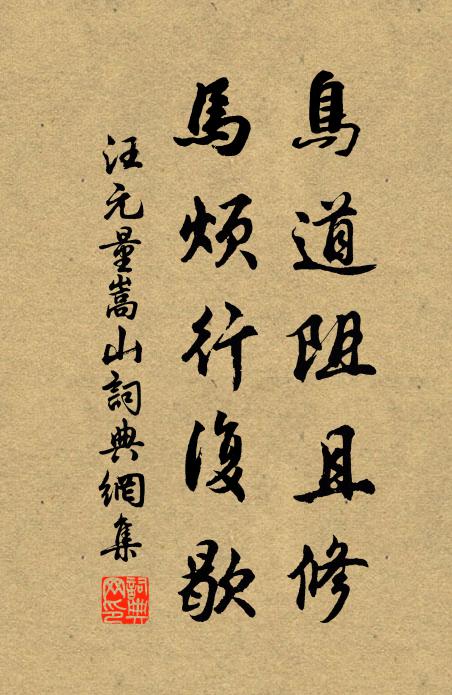 鳥道阻且修
馬煩行復歇
汪元量嵩山詞典網集
詞典網印